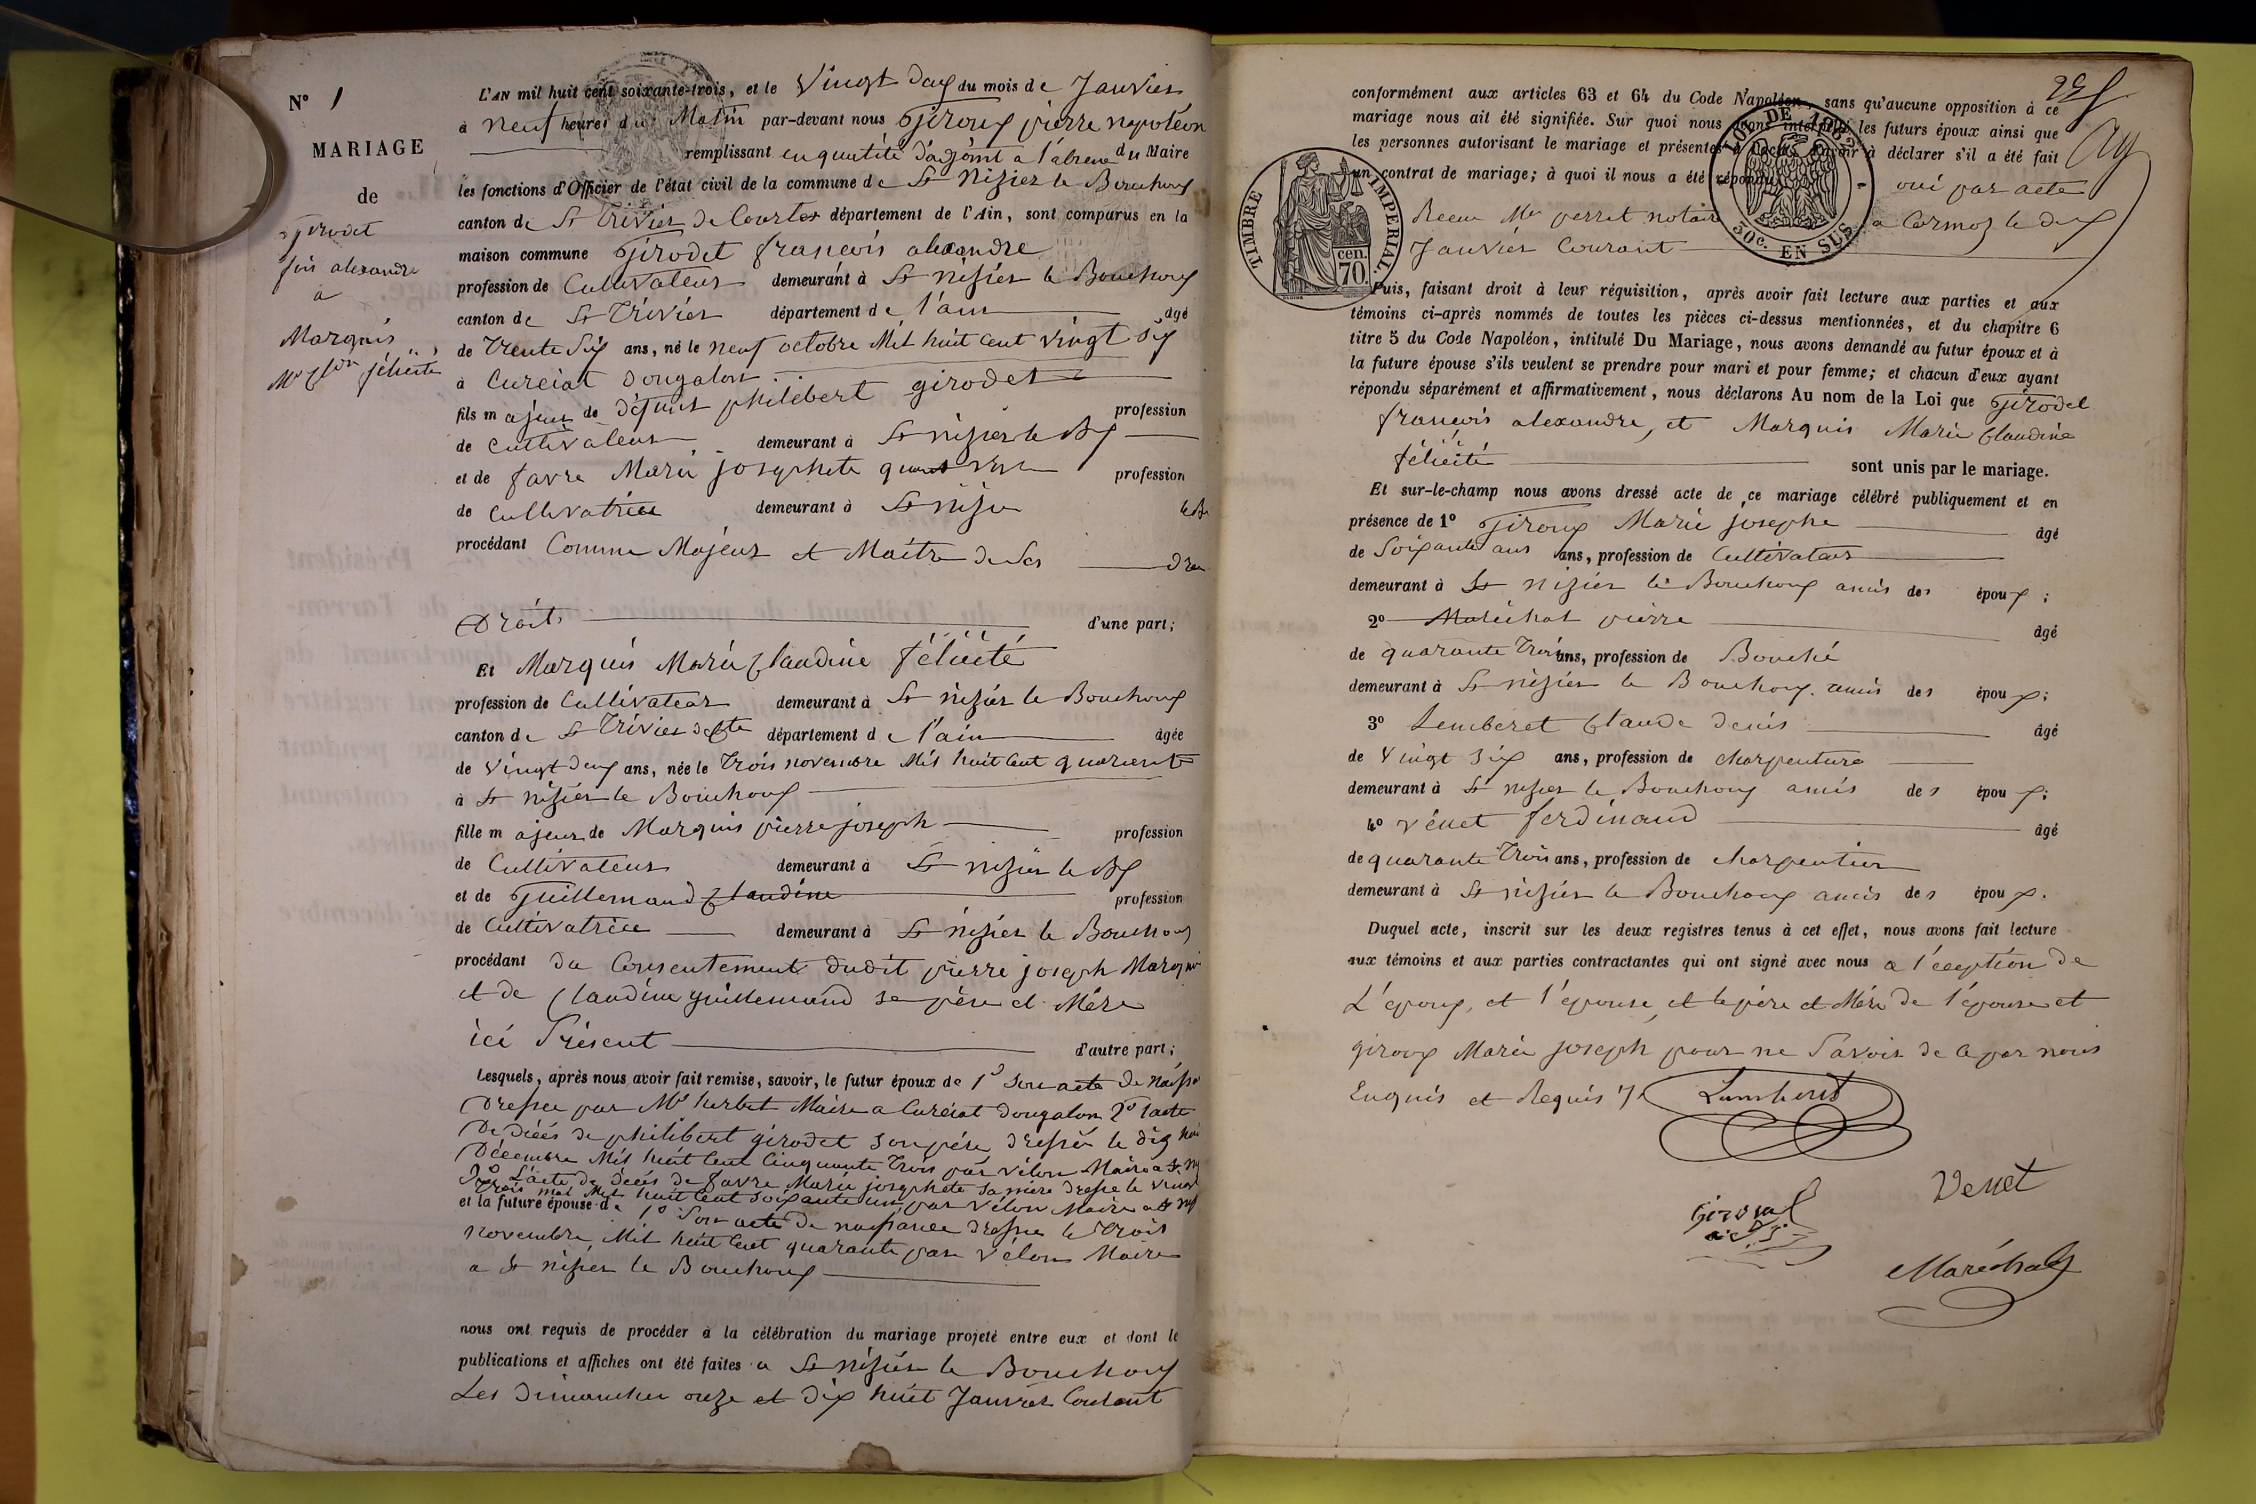 N° 1
MARIAGE
de
girodet
fois alexandre
a
Marquis
Mie Cdine félicité
L'AN mil huit cent soixante-trois, et le Vingt deux du mois de Janvier
à neuf heures du Matin par-devant nous Giroux pierre napoléon
remplissant en quatité d'adjoint a l'absence du Maire
les fonctions d'Officier de l'état civil de la commune de St Nizier le Bouchoux
canton de St Trivier de Courtes département de l'Ain, sont comparus en la
maison commune Girodet françois alexandre
profession de Cultivateur demeurant à St nizier le Bouchoux
canton de St Trivier département de l'ain âgé
de Trente Six ans, né le neuf octobre Mil huit Cent Vingt Six
à Curciat Dongalon
fils majeur de défunt philibert girodet profession
de Cultivateur demeurant à St nizier le Bx
et de favre Marie josephete profession
de Cultivatrice demeurant à St nizier le B
procédant Comme Majeur et Maitre de Ses
Droits d'une part;
Et Marquis Marie Claudine félicité
profession de Cultivateur demeurant à St nizier le Bouchoux
canton de St Trivier de Cte département de l'ain âgée
de Vingt deux ans, née le Trois novembre Mil huit Cent quarante
à St nizier le Bouchoux
fille majeur de Marquis pierre joseph profession
de Cultivateur demeurant à St nizier le Bx
et de Guillemaud Claudine profession
de Cultivatrice demeurant à St nizier le Bouchoux
procédant du Consentement dudit pierre joseph Marquis
et de Claudine guillemaud se père et Mère
ici Présent d'autre part;
Lesquels, après nous avoir fait remise, savoir, le futur époux de 1° Son acte de
Dressee par Mr herbet Maire a Curciat dongalon 2° l'acte
De décés de philibert girodet Son père dressée le dix
Décembre Mil huit Cent Cinquante Trois par Vélon Maire a St
3° L'acte de décés de favre Marie josephete Sa mère dressé le
Trois mai Mil huit Cent Soixante un par Vélon Maire a St
et la future épouse de 1° Son acte de naissance dressée le Trois
novembre Mil huit Cent quarante par Vélon Maire
a St nizier le Bouchoux
nous ont requis de procéder à la célébration du mariage projeté entre eux et dont le
publications et affiches ont été faites a St nizier le Bouchoux
Les dimanches onze et dix huit Janvier Courant
conformément aux articles 63 et 64 du Code Napoléon, sans qu'aucune opposition à ce
mariage nous ait été signifiée. Sur quoi nous avons interpellé les futurs époux ainsi que
les personnes autorisant le mariage et présentes à l'acte d'avoir à déclarer s'il a été fait
un contrat de mariage; à quoi il nous a été répondu oui par acte
Recu Me perret notaire a Cormoz le dix
Janvier Courant
TIMBRE IMPERIAL
70 cen.
LOI DE 1862
50c. EN SUS
Puis, faisant droit à leur réquisition, après avoir fait lecture aux parties et aux
témoins ci-après nommés de toutes les pièces ci-dessus mentionnées, et du chapitre 6
titre 5 du Code Napoléon, intitulé Du Mariage, nous avons demandé au futur époux et à
la future épouse s'ils veulent se prendre pour mari et pour femme; et chacun d'eux ayant
répondu séparément et affirmativement, nous déclarons Au nom de la Loi que Girodet
françois alexandre, et Marquis Marie Claudine
félicité sont unis par le mariage.
Et sur-le-champ nous avons dressé acte de ce mariage célébré publiquement et en
présence de 1° Giroux Marie josephe âgé
de Soixante ans ans, profession de Cultivateur
demeurant à St nizier le Bouchoux amis des époux;
2° Maréchal pierre âgé
de quarante Trois ans, profession de Bouché
demeurant à St nizier le Bouchoux amis des époux;
3° Lemberet Claude denis âgé
de Vingt Six ans, profession de charpenture
demeurant à St nizier le Bouchoux amis des époux;
4° Vénet ferdinand âgé
de quarante Trois ans, profession de charpentier
demeurant à St nizier le Bouchoux amis des époux.
Duquel acte, inscrit sur les deux registres tenus à cet effet, nous avons fait lecture
aux témoins et aux parties contractantes qui ont signé avec nous a l'éception de
L'époux, et l'épouse, et le père et Mère de l'épouse et
giroux Marie joseph pour ne Savoir de ce par nous
Enquis et Requis
Venet
Maréchal